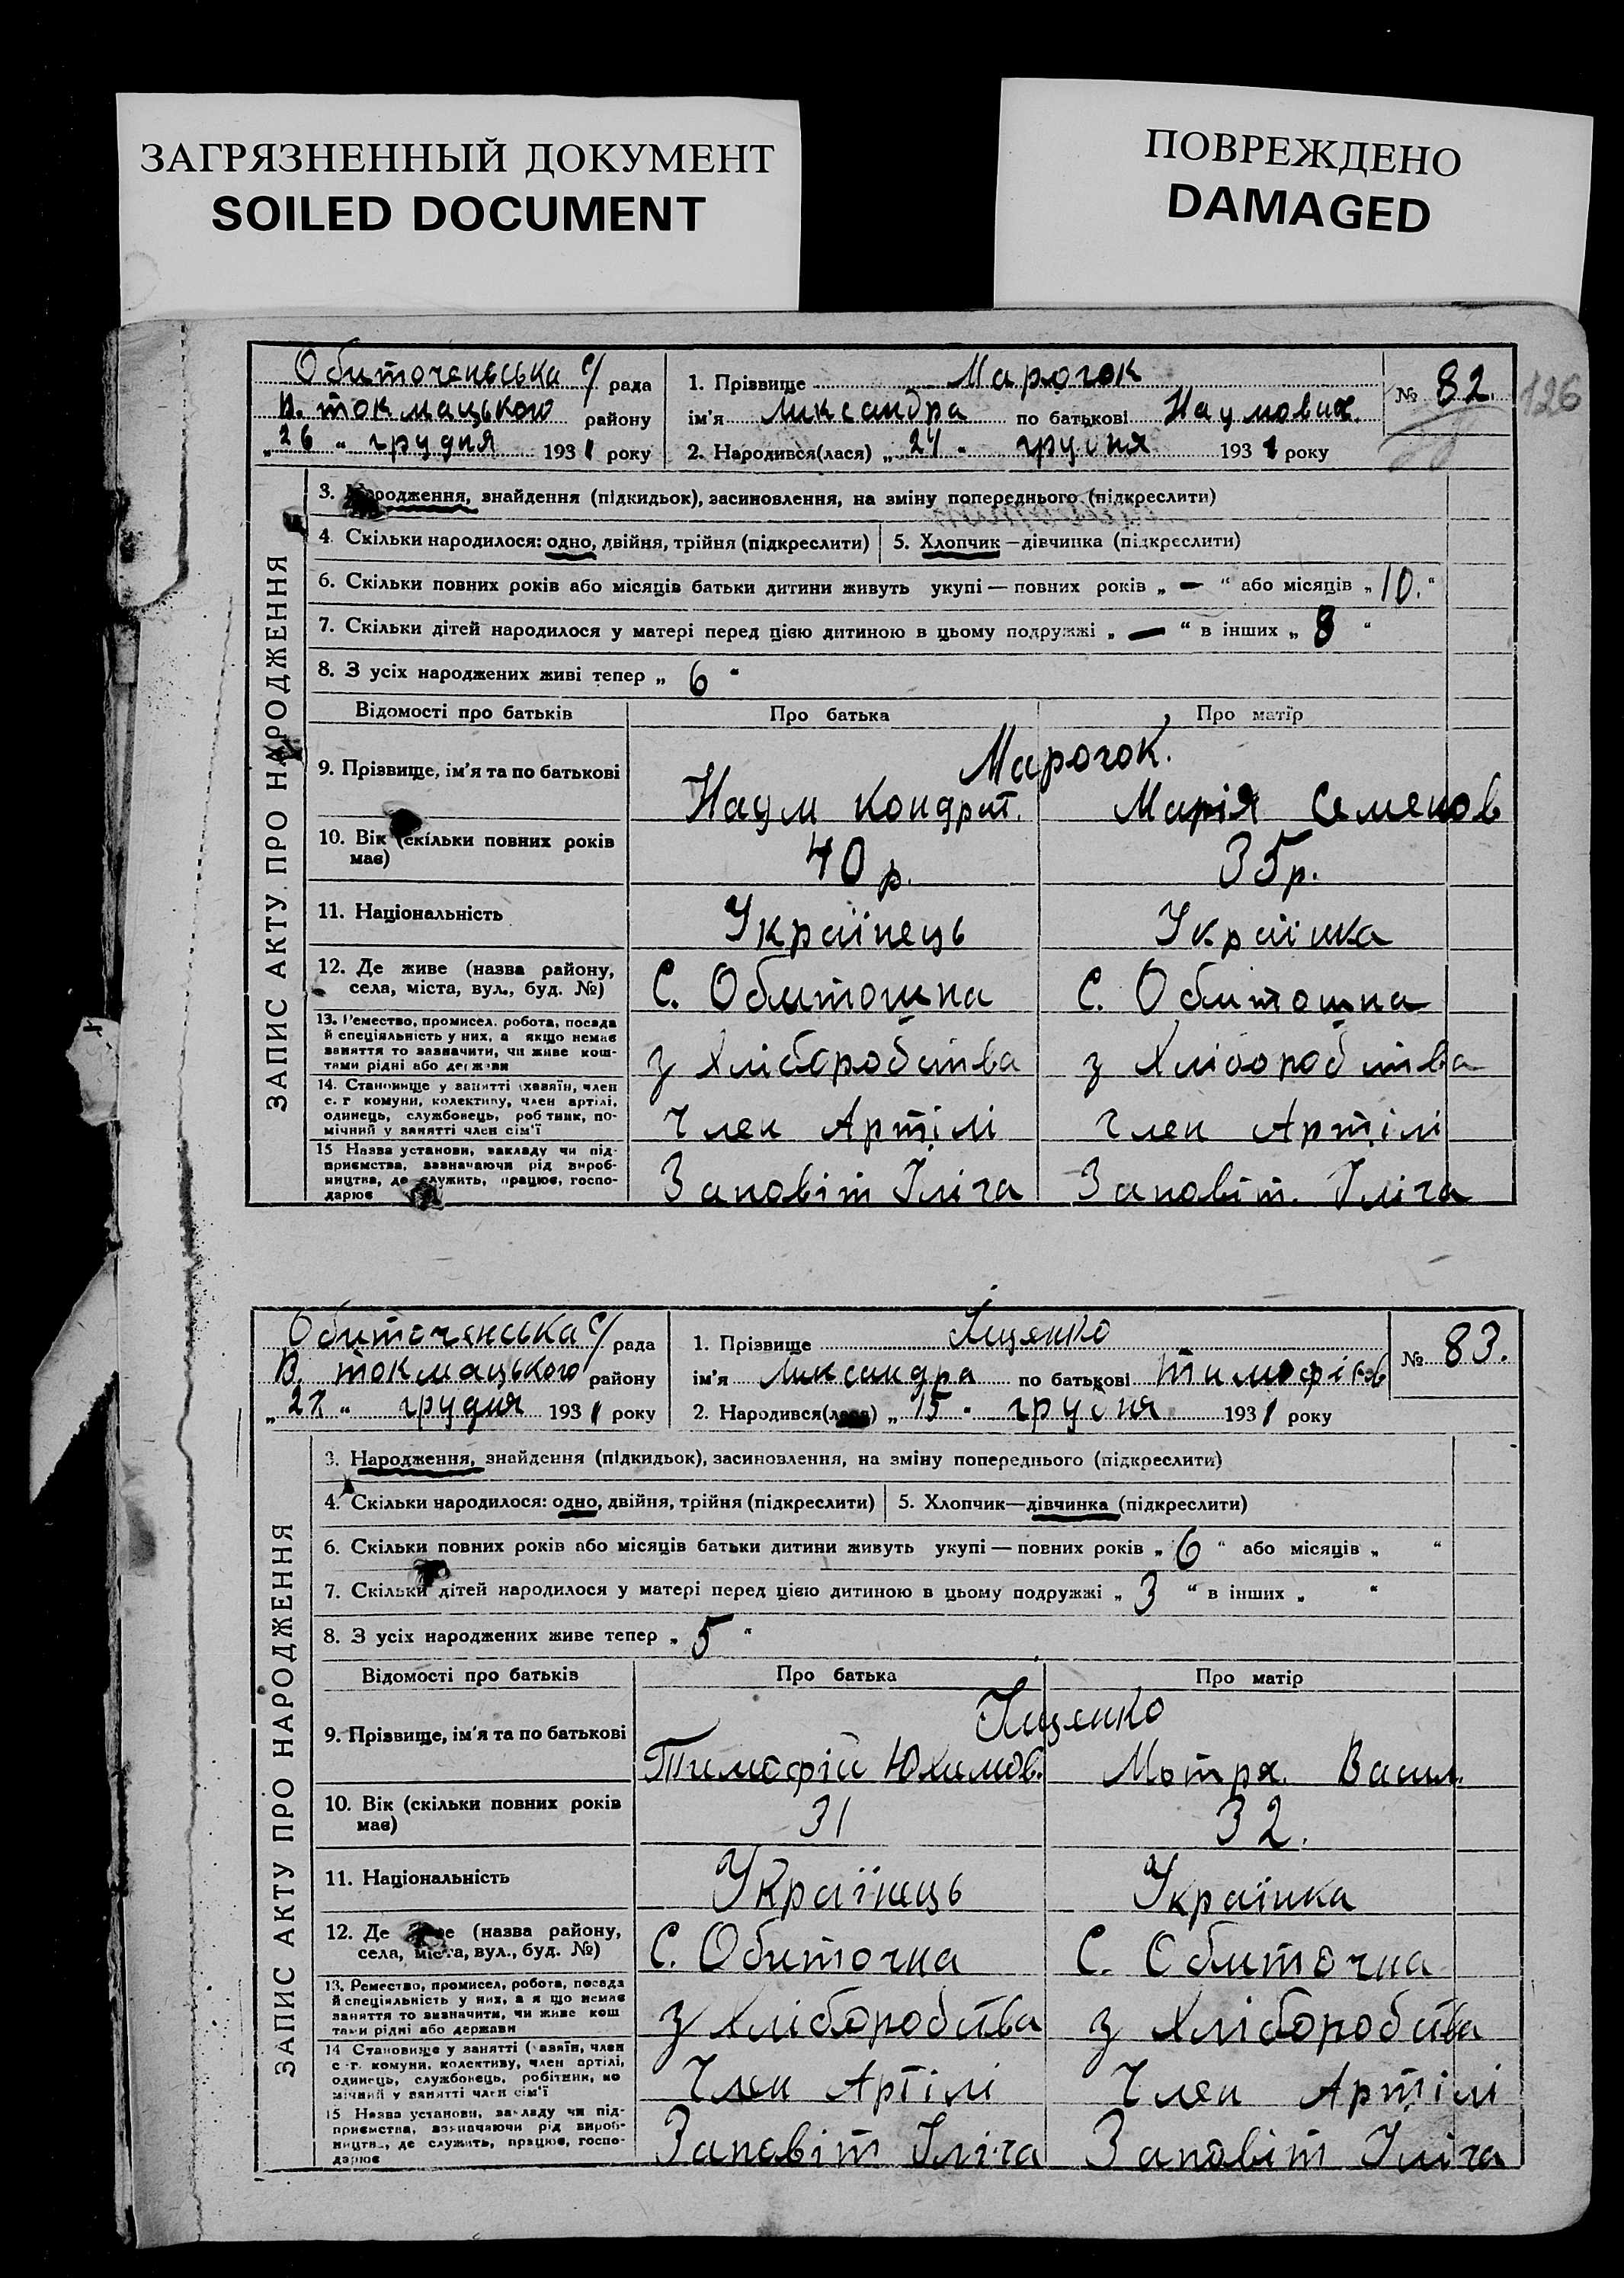 ЗАГРЯЗНЕННЫЙ ДОКУМЕНТ
SOILED DOCUMENT
ПОВРЕЖДЕНО
DAMAGED
126
ЗАПИС АКТУ ПРО НАРОДЖЕННЯ
Обиточенська с/ рада
В. токмацького району
„26“ грудня 1931 року
1. Прізвище Марочок
ім'я Лександра по батькові Наумович.
2. Народився(лася) „24“ грудня 1931 року
№ 82.
3. Народження, знайдення (підкидьок), засиновлення, на зміну попереднього (підкреслити)
4. Скільки народилося: одно, двійня, трійня (підкреслити)
5. Хлопчик—дівчинка (підкреслити)
6. Скільки повних років або місяців батьки дитини живуть укупі — повних років „—“ або місяців „10.“
7. Скільки дітей народилося у матері перед цією дитиною в цьому подружжі „—“ в інших „8“
8. З усіх народжених живі тепер „6“
Відомості про батьків Про батька Про матір
9. Прізвище, ім'я та по батькові
Марочок.
Наум Кондрат. Марія Семенов
10. Вік (скільки повних років має)
40 р. 35 р.
11. Національність
Українець Українка
12. Де живе (назва району, села, міста, вул., буд. №)
С. Обитошна С. Обитошна
13. Ремество, промисел, робота, посада й спеціяльність у них, а якщо немає заняття то зазначити, чи живе коштами рідні або держави
з Хліборобства з Хліборобства
14. Становище у занятті (хазяїн, член с.-г. комуни, колективу, член артілі, одинець, службовець, робітник, помічний у занятті член сім'ї
Член Артілі Член Артілі
15 Назва установи, закладу чи підприємства, зазначаючи рід виробництва, де служить, працює, господарює
Заповіт Іліча Заповіт. Іліча
ЗАПИС АКТУ ПРО НАРОДЖЕННЯ
Обиточенська с/ рада
В. токмацького району
„27“ грудня 1931 року
1. Прізвище Яценко
ім'я Лександра по батькові Тимофієв
2. Народився(лася) „15“ грудня 1931 року
№ 83.
3. Народження, знайдення (підкидьок), засиновлення, на зміну попереднього (підкреслити)
4. Скільки народилося: одно, двійня, трійня (підкреслити)
5. Хлопчик—дівчинка (підкреслити)
6. Скільки повних років або місяців батьки дитини живуть укупі — повних років „6“ або місяців „ “
7. Скільки дітей народилося у матері перед цією дитиною в цьому подружжі „3“ в інших „ “
8. З усіх народжених живе тепер „5“
Відомості про батьків Про батька Про матір
9. Прізвище, ім'я та по батькові
Яценко
Тимофій Юхимов. Мотря. Васил.
10. Вік (скільки повних років має)
31 32.
11. Національність
Українець Українка
12. Де живе (назва району, села, міста, вул., буд. №)
С. Обиточна С. Обиточна
13. Ремество, промисел, робота, посада й спеціяльність у них, а я що немає заняття то визначити, чи живе кош тами рідні або держави
з Хліборобства з Хліборобства
14 Становище у занятті (хазяїн, член с.-г. комуни, колективу, член артілі, одинець, службовець, робітник, помічний у занятті член сім'ї
Член Артілі Член Артілі
15 Назва установи, закладу чи підприємства, зазначаючи рід виробництва, де служить, працює, господарює
Заповіт Іліча Заповіт Іліча